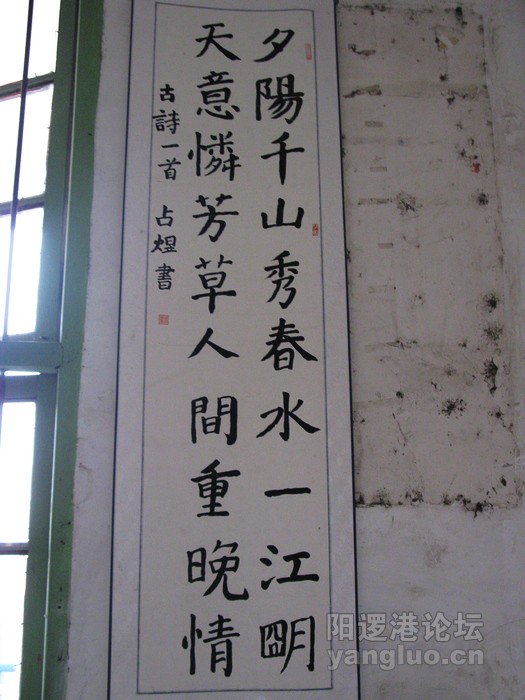 夕陽千山秀春水一江朙
天意憐芳草人間重晚情
古詩一首 占煜書
阳逻港论坛
yangluo.cn